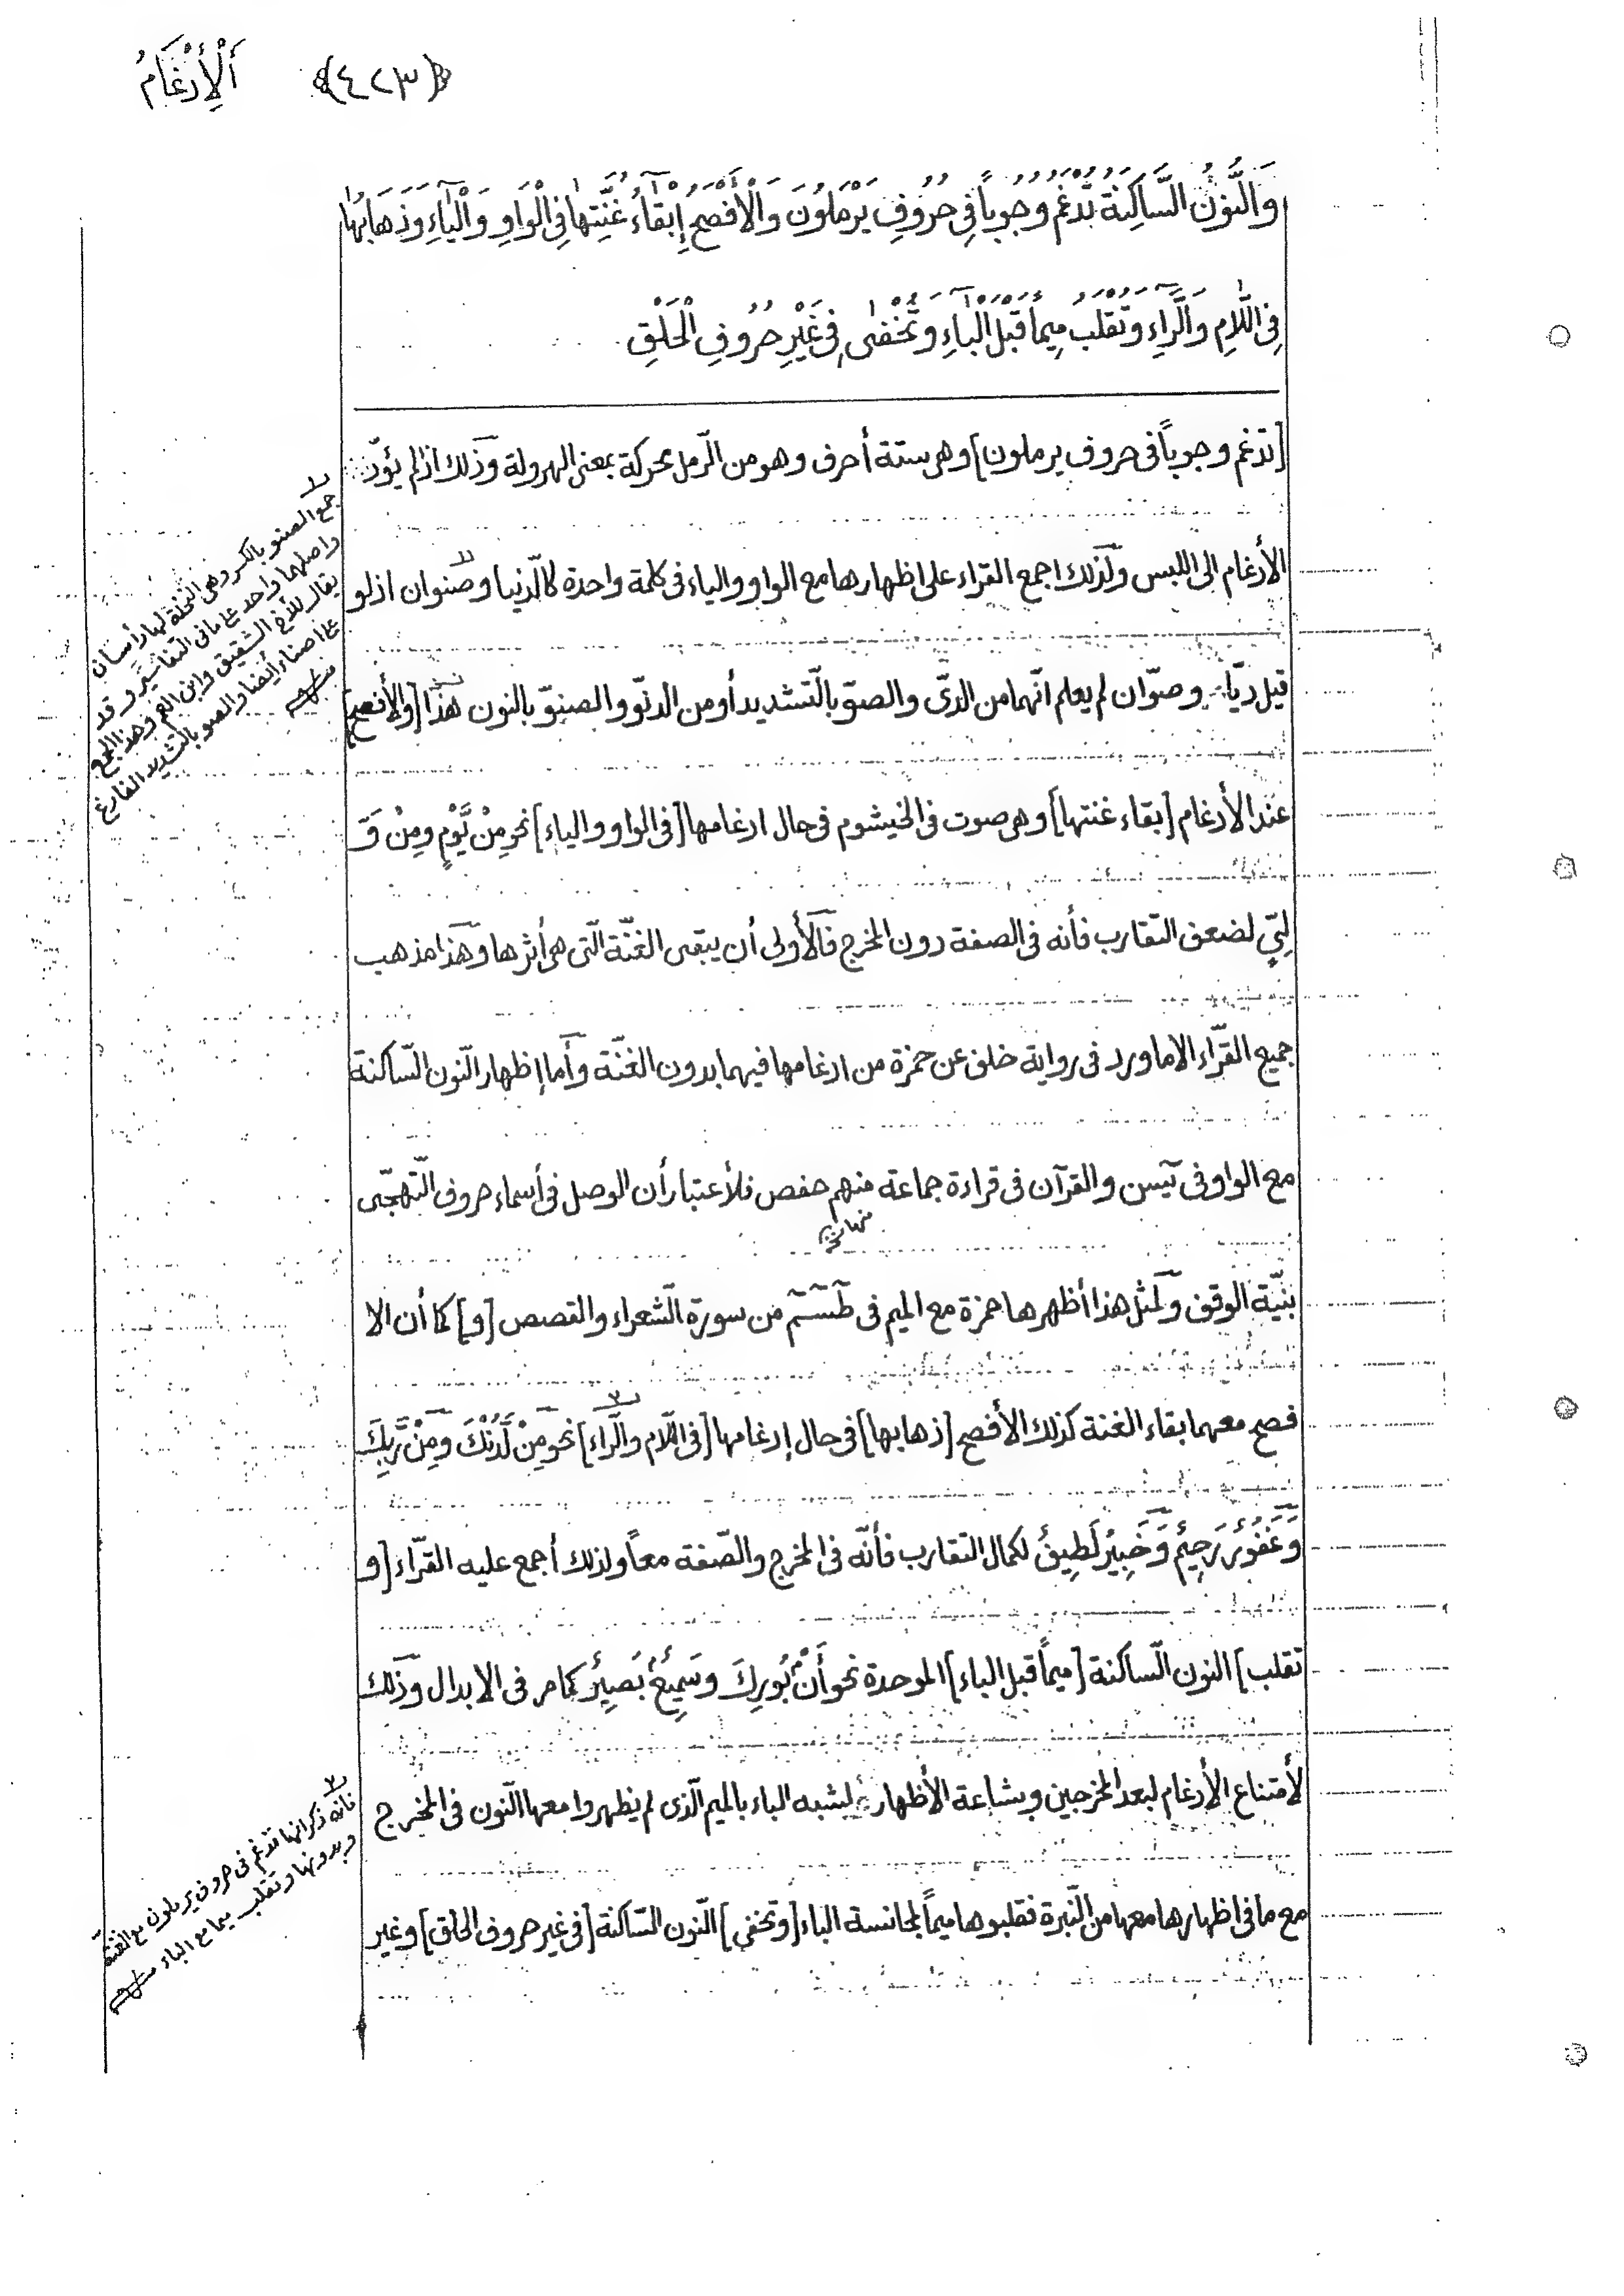 ﴿٤٢٣﴾ اَلْإِدْغَامُ
وَالنُّوْنُ السَّاكِنَةُ تُدْغَمُ وُجُوْباً فِى حُرُوْفِ يَرْمَلُوْنَ وَالْأَفْصَحُ إِبْقَآءُ غُنَّتِهَا فِى الْوَاوِ وَالْيَآءِ وَذَهَابُهَا
فِى اللَّامِ وَالرَّآءِ وَتُقْلَبُ مِيماً قَبْلَ الْبَآءِ وَتُخْفٰى فِى غَيْرِ حُرُوْفِ الْحَلْقِ
[تدغم وجوباً فى حروف يرملون] وهى ستة أحرف وهو من الرّمل محركة بمعنى الهرولة وذلك اذا لم يؤدّ
الأدغام الى اللبس ولذلك اجمع القراء على اظهارها مع الواو والياء فى كلمة واحدة كالدّنيا وصنوان اذ لو
قيل ديّا وصوّان لم يعلم انّهما من الدىّ والصوّ بالتّشديد أو من الدنوّ والصنوّ بالنون هذا [والأفصح]
عند الأدغام [بقاء غنتها] وهى صوت فى الخيشوم فى حال ادغامها [فى الواو والياء] نحو مِنْ يَّوْمٍ ومِنْ وَّ
لِيٍّ لضعف التقارب فأنه فى الصفة دون المخرج فالأولى أن يبقى الغنّة الّتى هى أثرها وهذا مذهب
جميع القرّاء الا ما ورد فى رواية خلف عن حمزة من ادغامها فيهما بدون الغنّة وأما إظهار النّون السّاكنة
مع الواو فى يٓسٓ والقرآن فى قراءة جماعة منهم حفص فلأعتبار أن الوصل فى أسماء حروف التّهجّى
بنيّة الوقف ولمثل هذا أظهرها حمزة مع الميم فى طٓسٓمٓ من سورة الشّعراء والقصص [و] كما أن الا
فصح معهما بقاء الغنة كذلك الأفصح [ذهابها] فى حال إدغامها [فى اللّام والرّاء] نحو مِنْ لَّدُنْكَ ومِنْ رَّبِّكَ
وَغَفُوْرٌ رَحِيْمٌ وَخَبِيْرٌ لَطِيفٌ لكمال التقارب فأنّه فى المخرج والصّفة معاً ولذلك أجمع عليه القرّاء [و
تقلب] النون السّاكنة [ميماً قبل الباء] الموحدة نحو أَنْ بُورِكَ وسَمِيْعٌ بَصِيْرٌ كما مر فى الابدال وذلك
لأمتناع الأدغام لبعد المخرجين وبشاعة الأظهار لشبه الباء بالميم الّذى لم يظهروا معها النّون فى المخرج
مع ما فى اظهارها معها من النّبرة فقلبوها ميماً لمجانسة الباء [وتخفى] النّون السّاكنة [فى غير حروف الحلق] وغير
جمع الصنو بالكسر وهى النخلة لها رأسان
واصلهما واحد ع ما فى التفاسير وقد
يقال للأخ الشقيق وابن العم وهذا الجمع
ع اصناء أيضا والصو بالتشديد الفارغ
منه
فانه ذكر انها تدغم فى حروف يرملون مع الغنة
وبدونها وتقلب ميما مع الباء منه